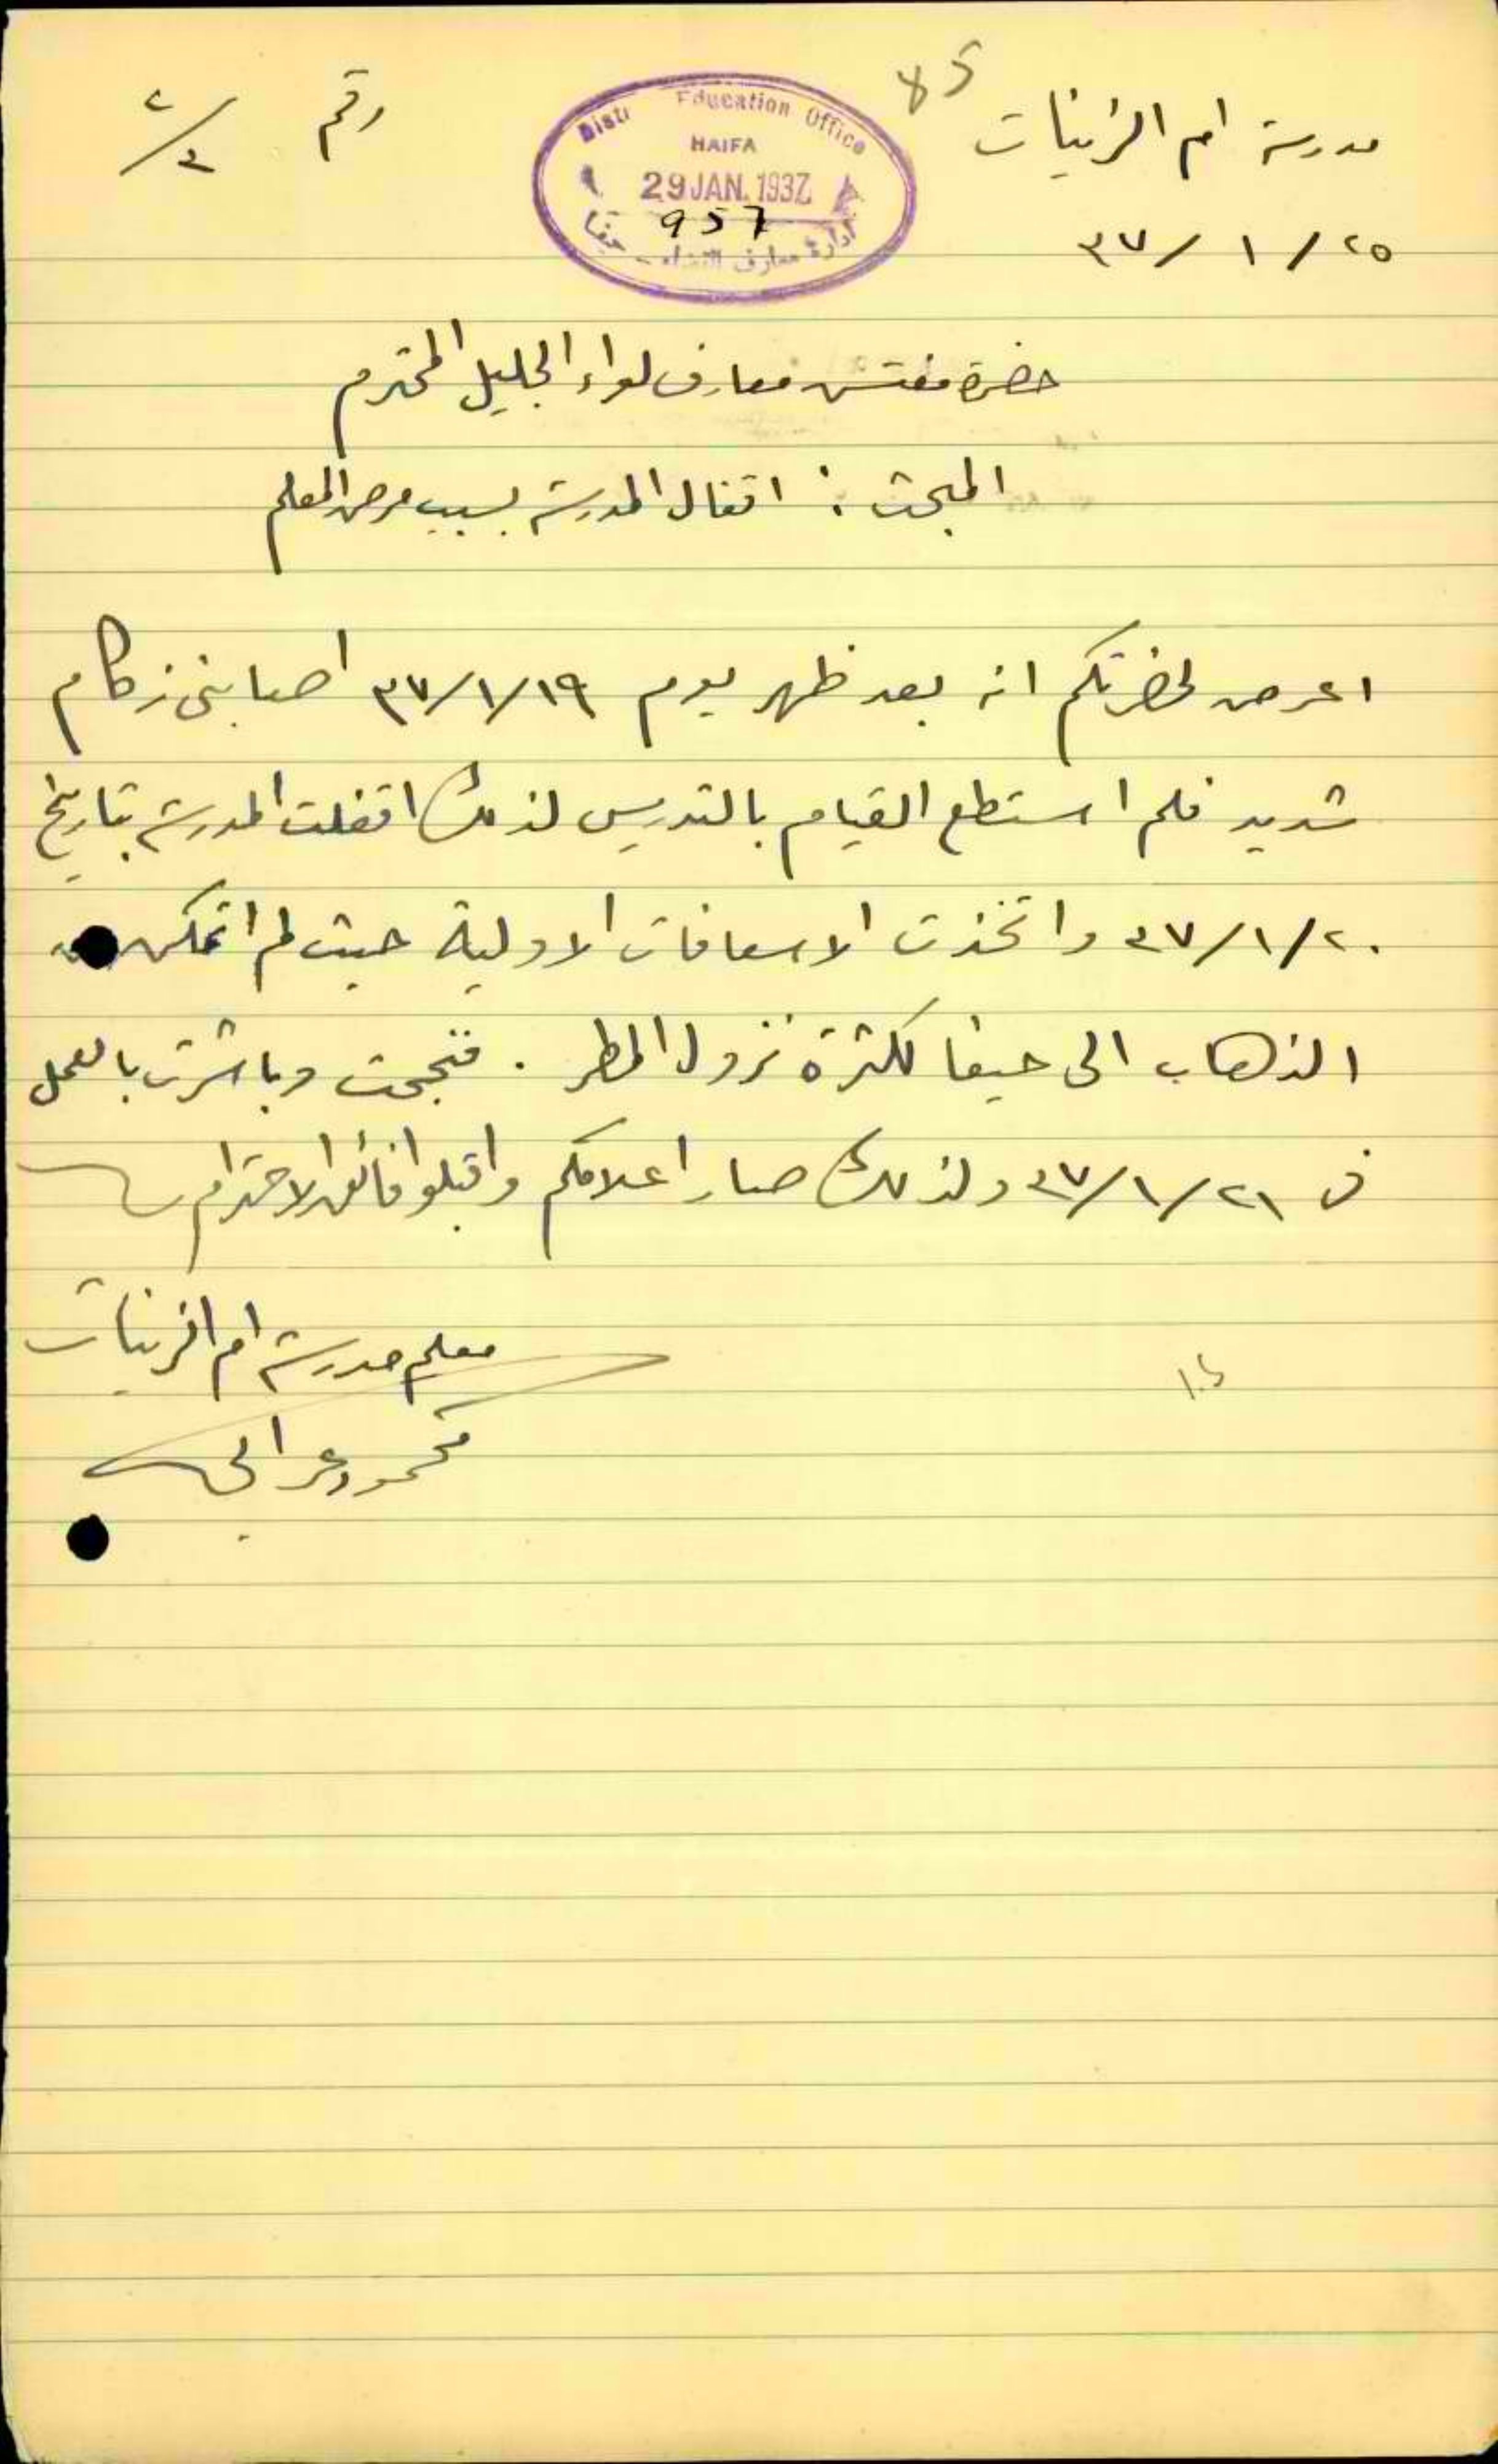 مدرسة ام الزينات
85
District Education Office
HAIFA
29 JAN. 1937
957
ادارة معارف القضاء - حيفا
رقم ٢/٣
٢٥/ ١ /٣٧
حضرة مفتش معارف لواء الجليل المحترم
المبحث : اقفال المدرسة بسبب مرض المعلم
اعرض لحضرتكم انه بعد ظهر يوم ٣٧/١/١٩ اصابني زكام
شديد فلم استطع القيام بالتدريس لذلك اقفلت المدرسة بتاريخ
٣٧/١/٢٠ واتخذت الاسعافات الاولية حيث لم اتمكن من
الذهاب الى حيفا لكثرة نزول المطر . فنجحت وباشرت بالعمل
في ٣٧/١/٢١ ولذلك صار اعلامكم واقبلوا فائق الاحترام
معلم مدرسة ام الزينات
محمود عرابي